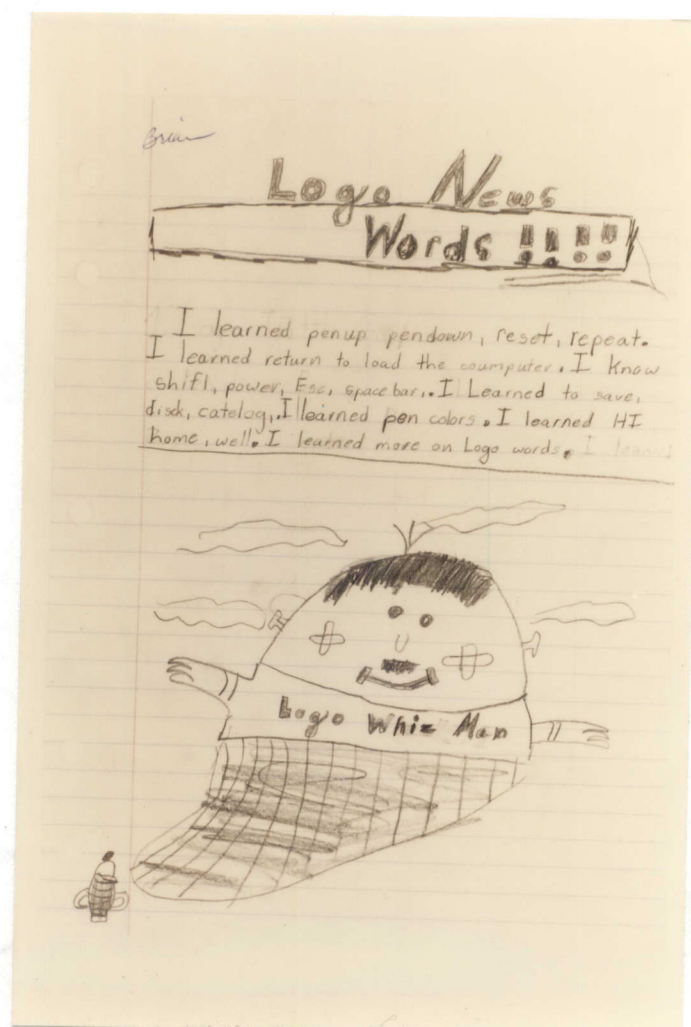 Brian
Logo News
Words !!!!
I learned penup pendown, reset, repeat.
I learned return to load the coumputer. I know
shift, power, Esc, space bar,. I Learned to save,
disck, catelog,. I learned pen colors. I learned HI
home, well. I learned more on Logo words. I learn
Logo Whiz Man